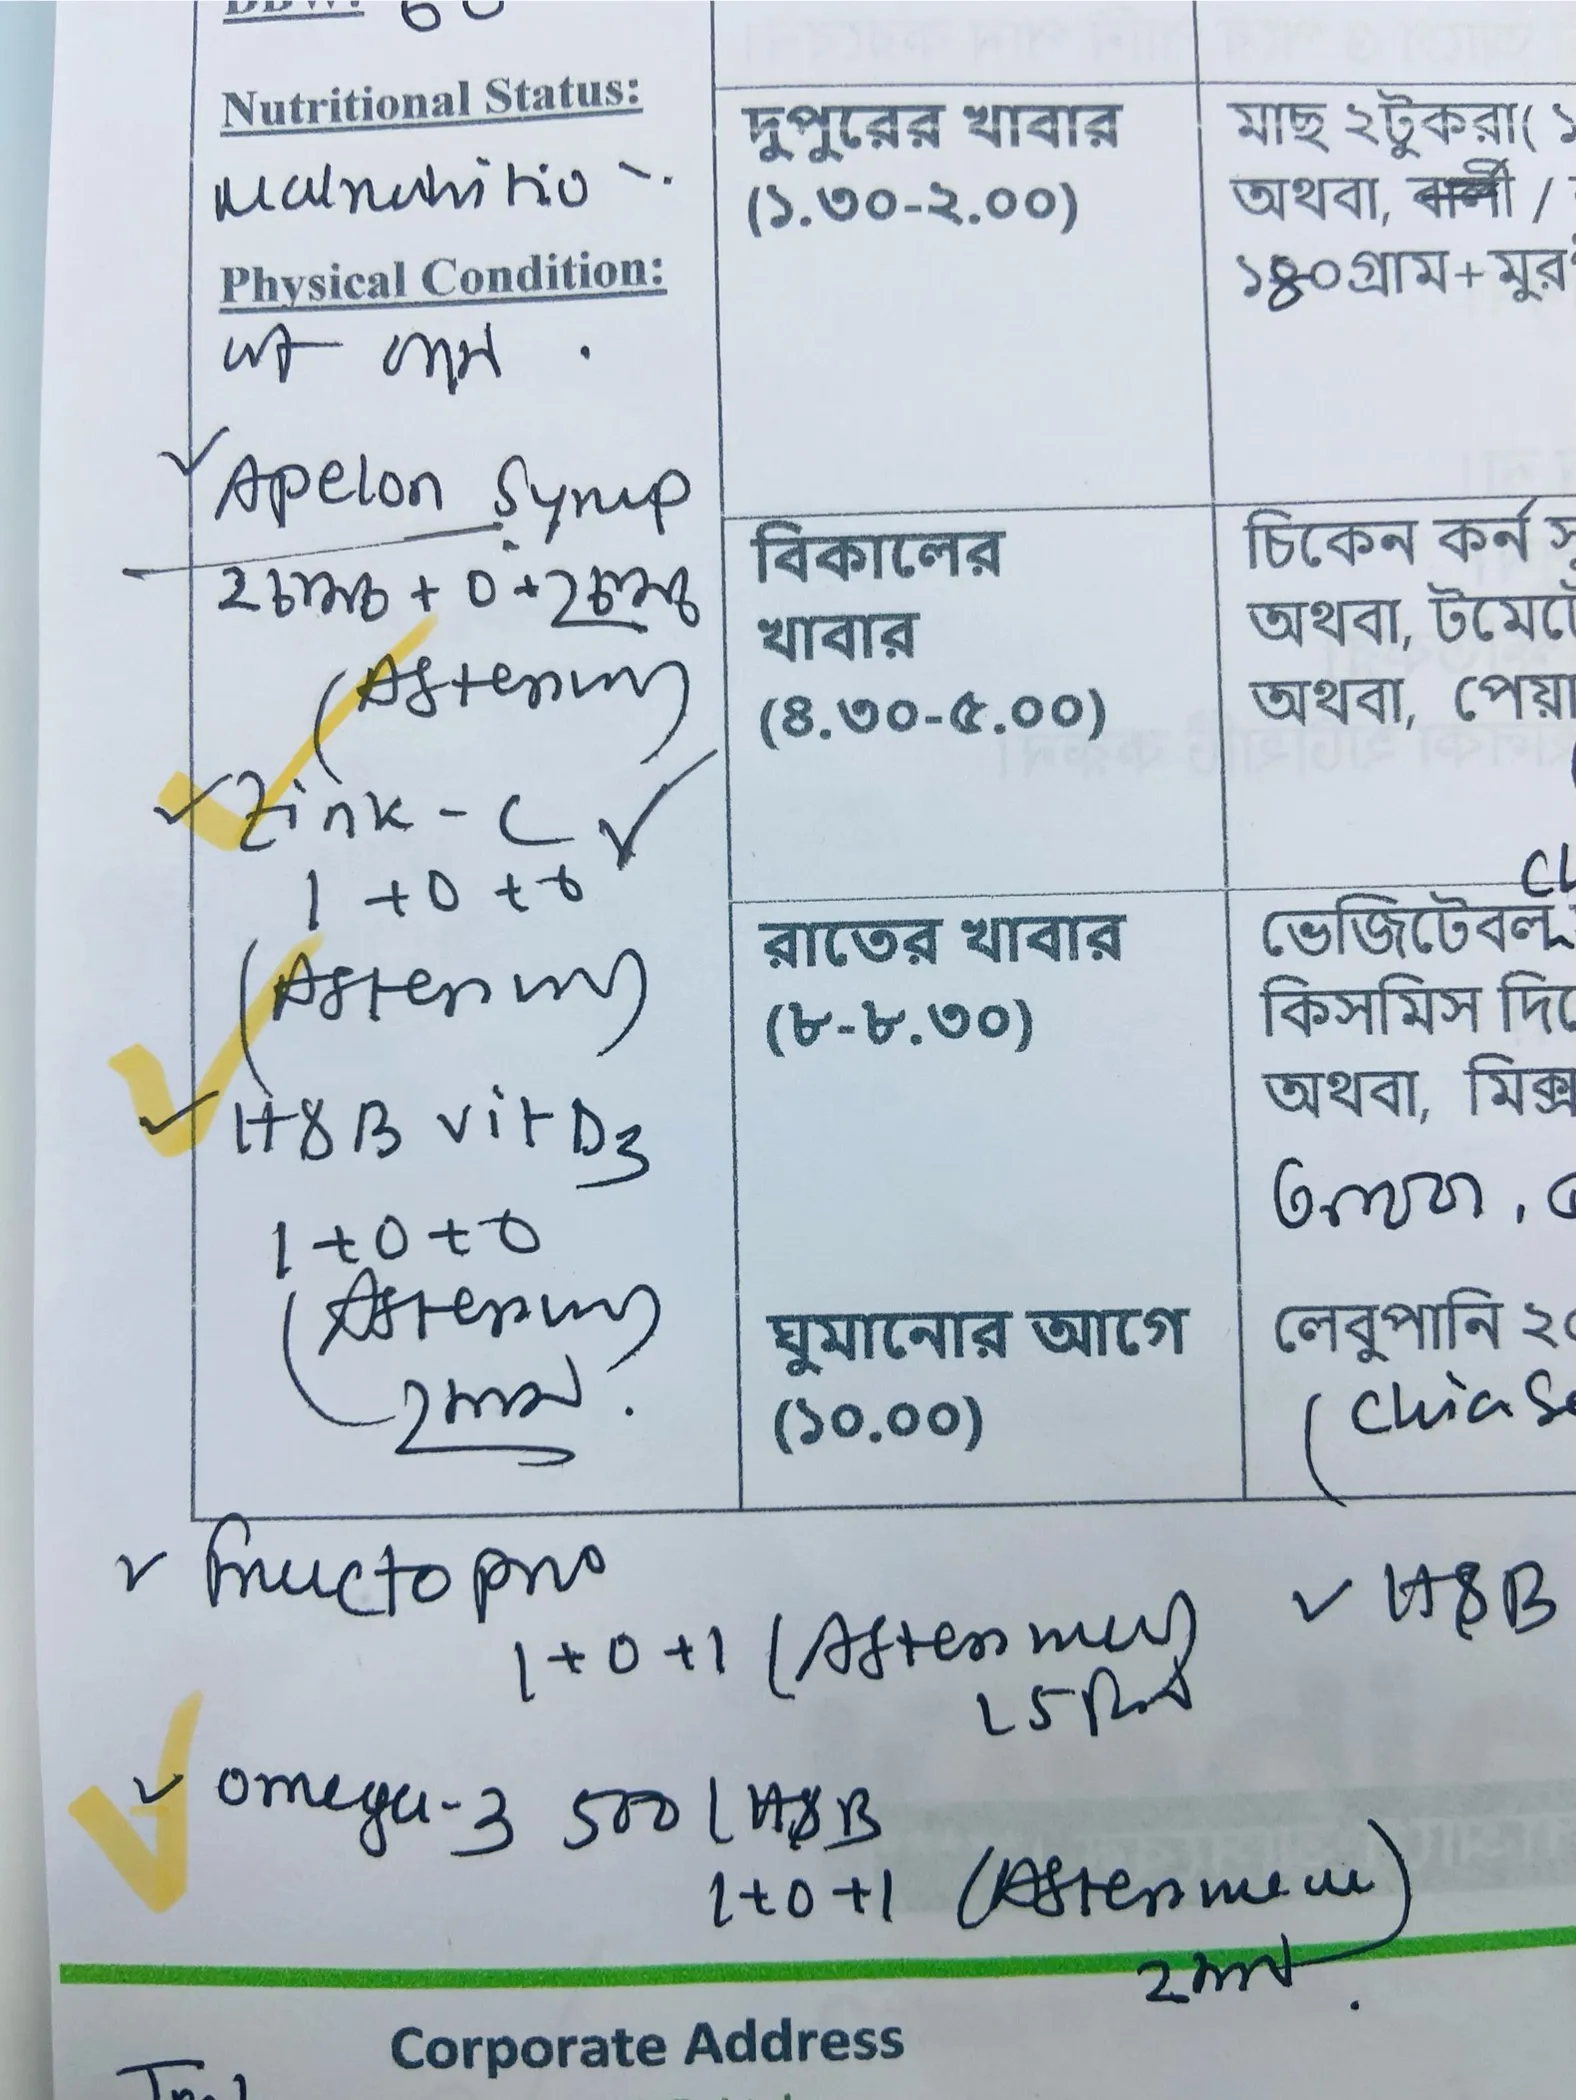 DBW: 60
Nutritional Status:
Malnutrition.
Physical Condition:
Apelon Syrup
2 চামচ + 0 + 2 চামচ
(After meal)
Zink - C
1 + 0 + 0
(After meal)
H&B vit D3
1 + 0 + 0
(After meal)
2 মাস.
দুপুরের খাবার
(১.৩০-২.০০)
মাছ ২টুকরা( ১
অথবা, বার্লী /
১৪০গ্রাম+মুর
বিকালের
খাবার
(৪.৩০-৫.০০)
চিকেন কর্ন সু
অথবা, টমেটো
অথবা, পেয়া
রাতের খাবার
(৮-৮.৩০)
ভেজিটেবল
কিসমিস দিয়ে
অথবা, মিক্স
ঘুমানোর আগে
(১০.০০)
লেবুপানি ২০
(Chia Se
Fructo pro
H&B
1+0+1 (After meal)
15 দিন
omega-3 500 H&B
1+0+1 (After meal)
2 মাস.
Corporate Address